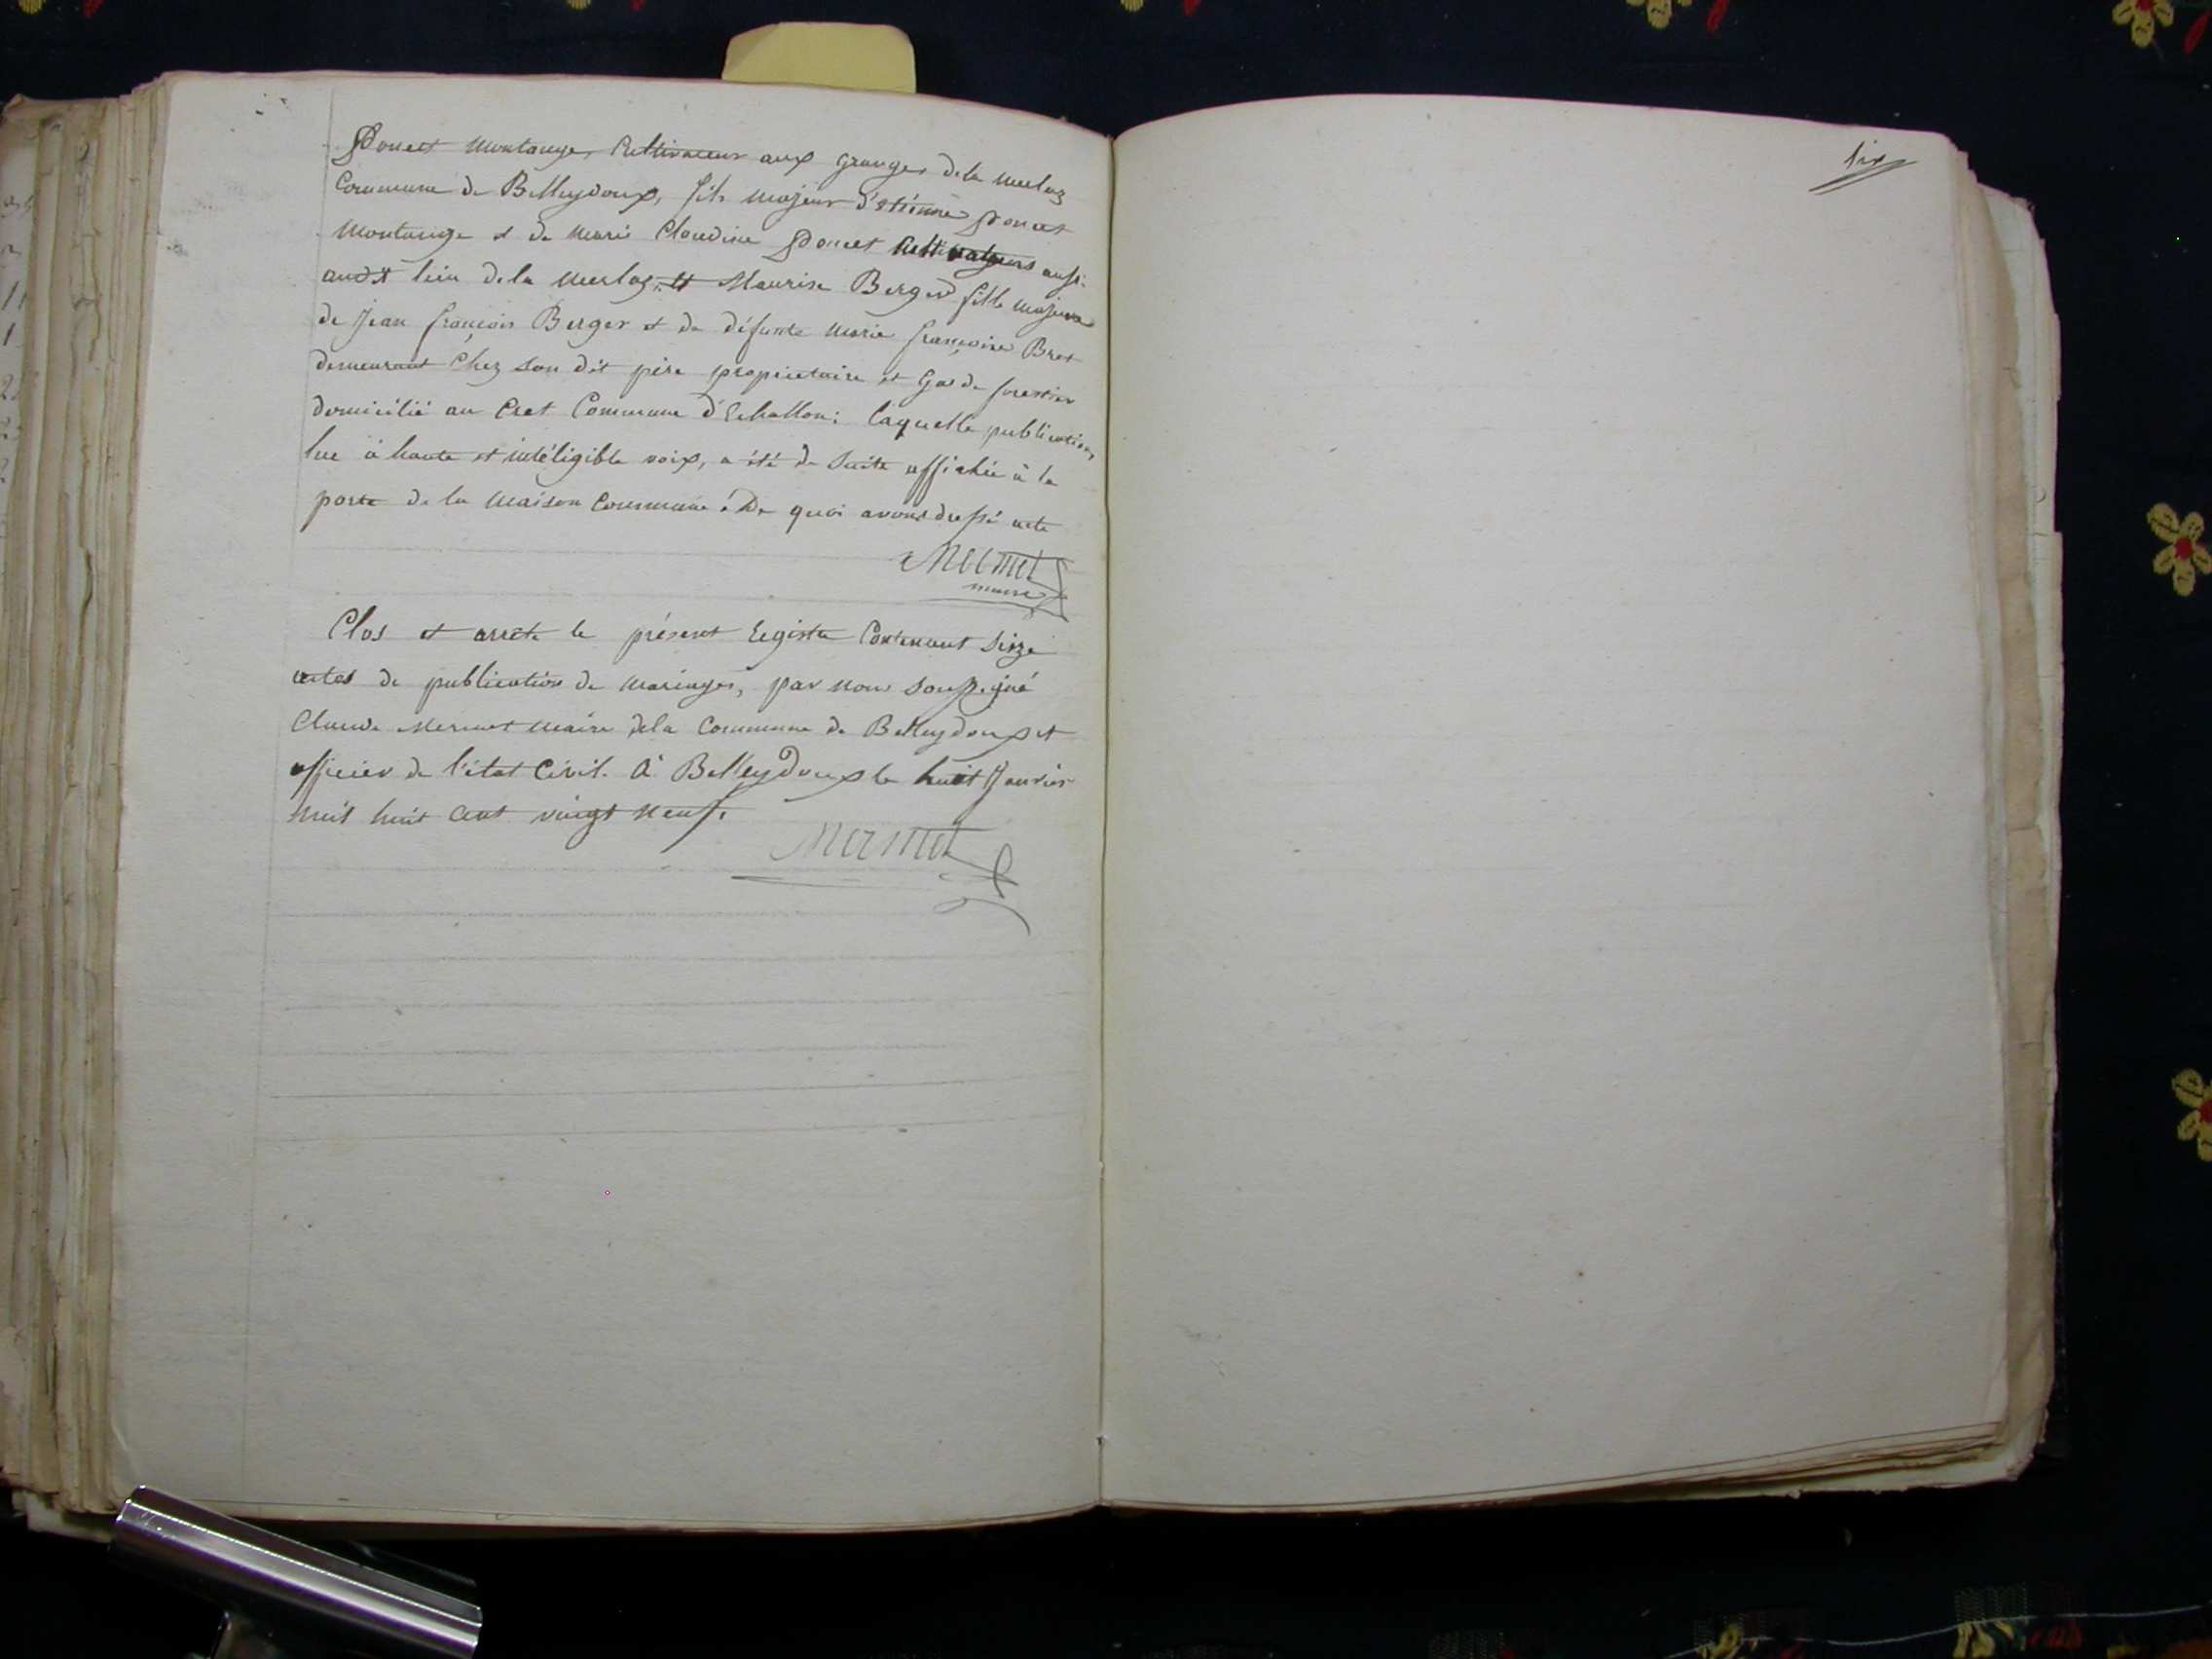 Poncet Montange, Cultivateur aux granges de la merlaz
Commune de Belleydoux, fils majeur d'étienne Poncet
montange et de marie Claudine Poncet Cultivateurs aussi
audit lieu de la merlaz, et Maurise Berger fille majeure
de Jean françois Berger et de défunte marie françoise Bret
demeurant Chez son dit père propriétaire et Garde forestier
domicilié au Cret Commune d'Echallon; laquelle publication,
lue à haute et inteligible voix, a été de Suite affichée à la
porte de la Maison Commune. De quoi avons dressé acte
Mermet
maire
Clos et arrêté le présent Registre Contenant Seize
actes de publication de mariages, par nous soussigné
Claude Mermet maire de la Commune de Belleydoux et
officier de l'état Civil. A Belleydoux le huit Janvier
mil huit Cent vingt neuf.
Mermet
six